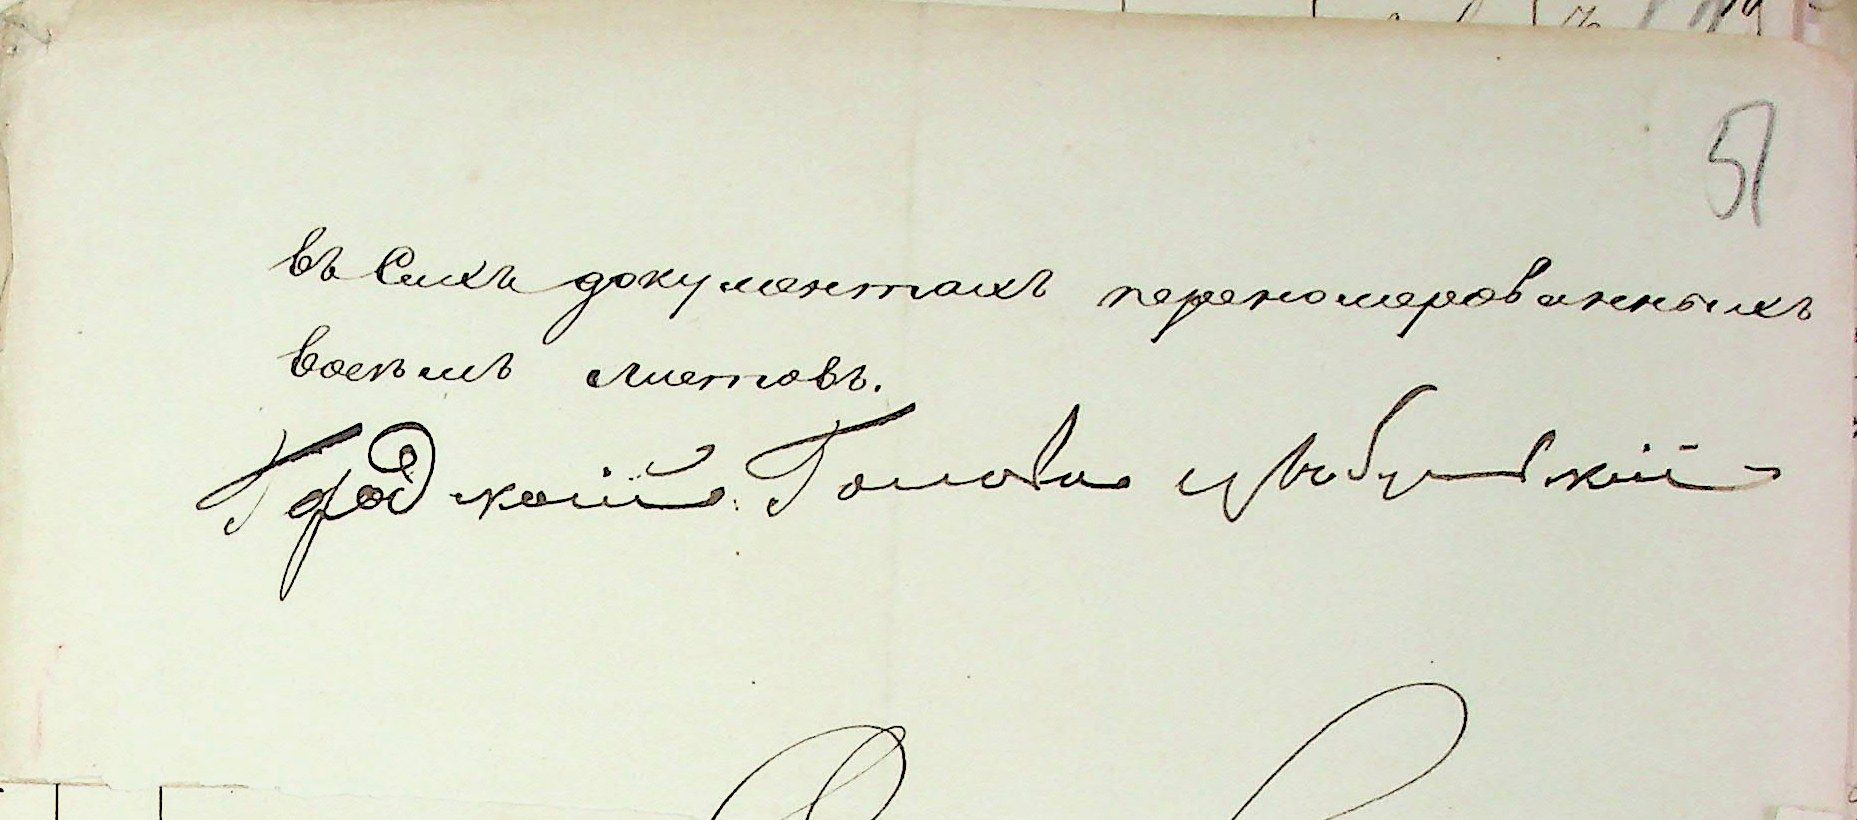 51
въ сихъ документахъ переномерованныхъ
восемъ листовъ.
Градской Голова Цыбульскій